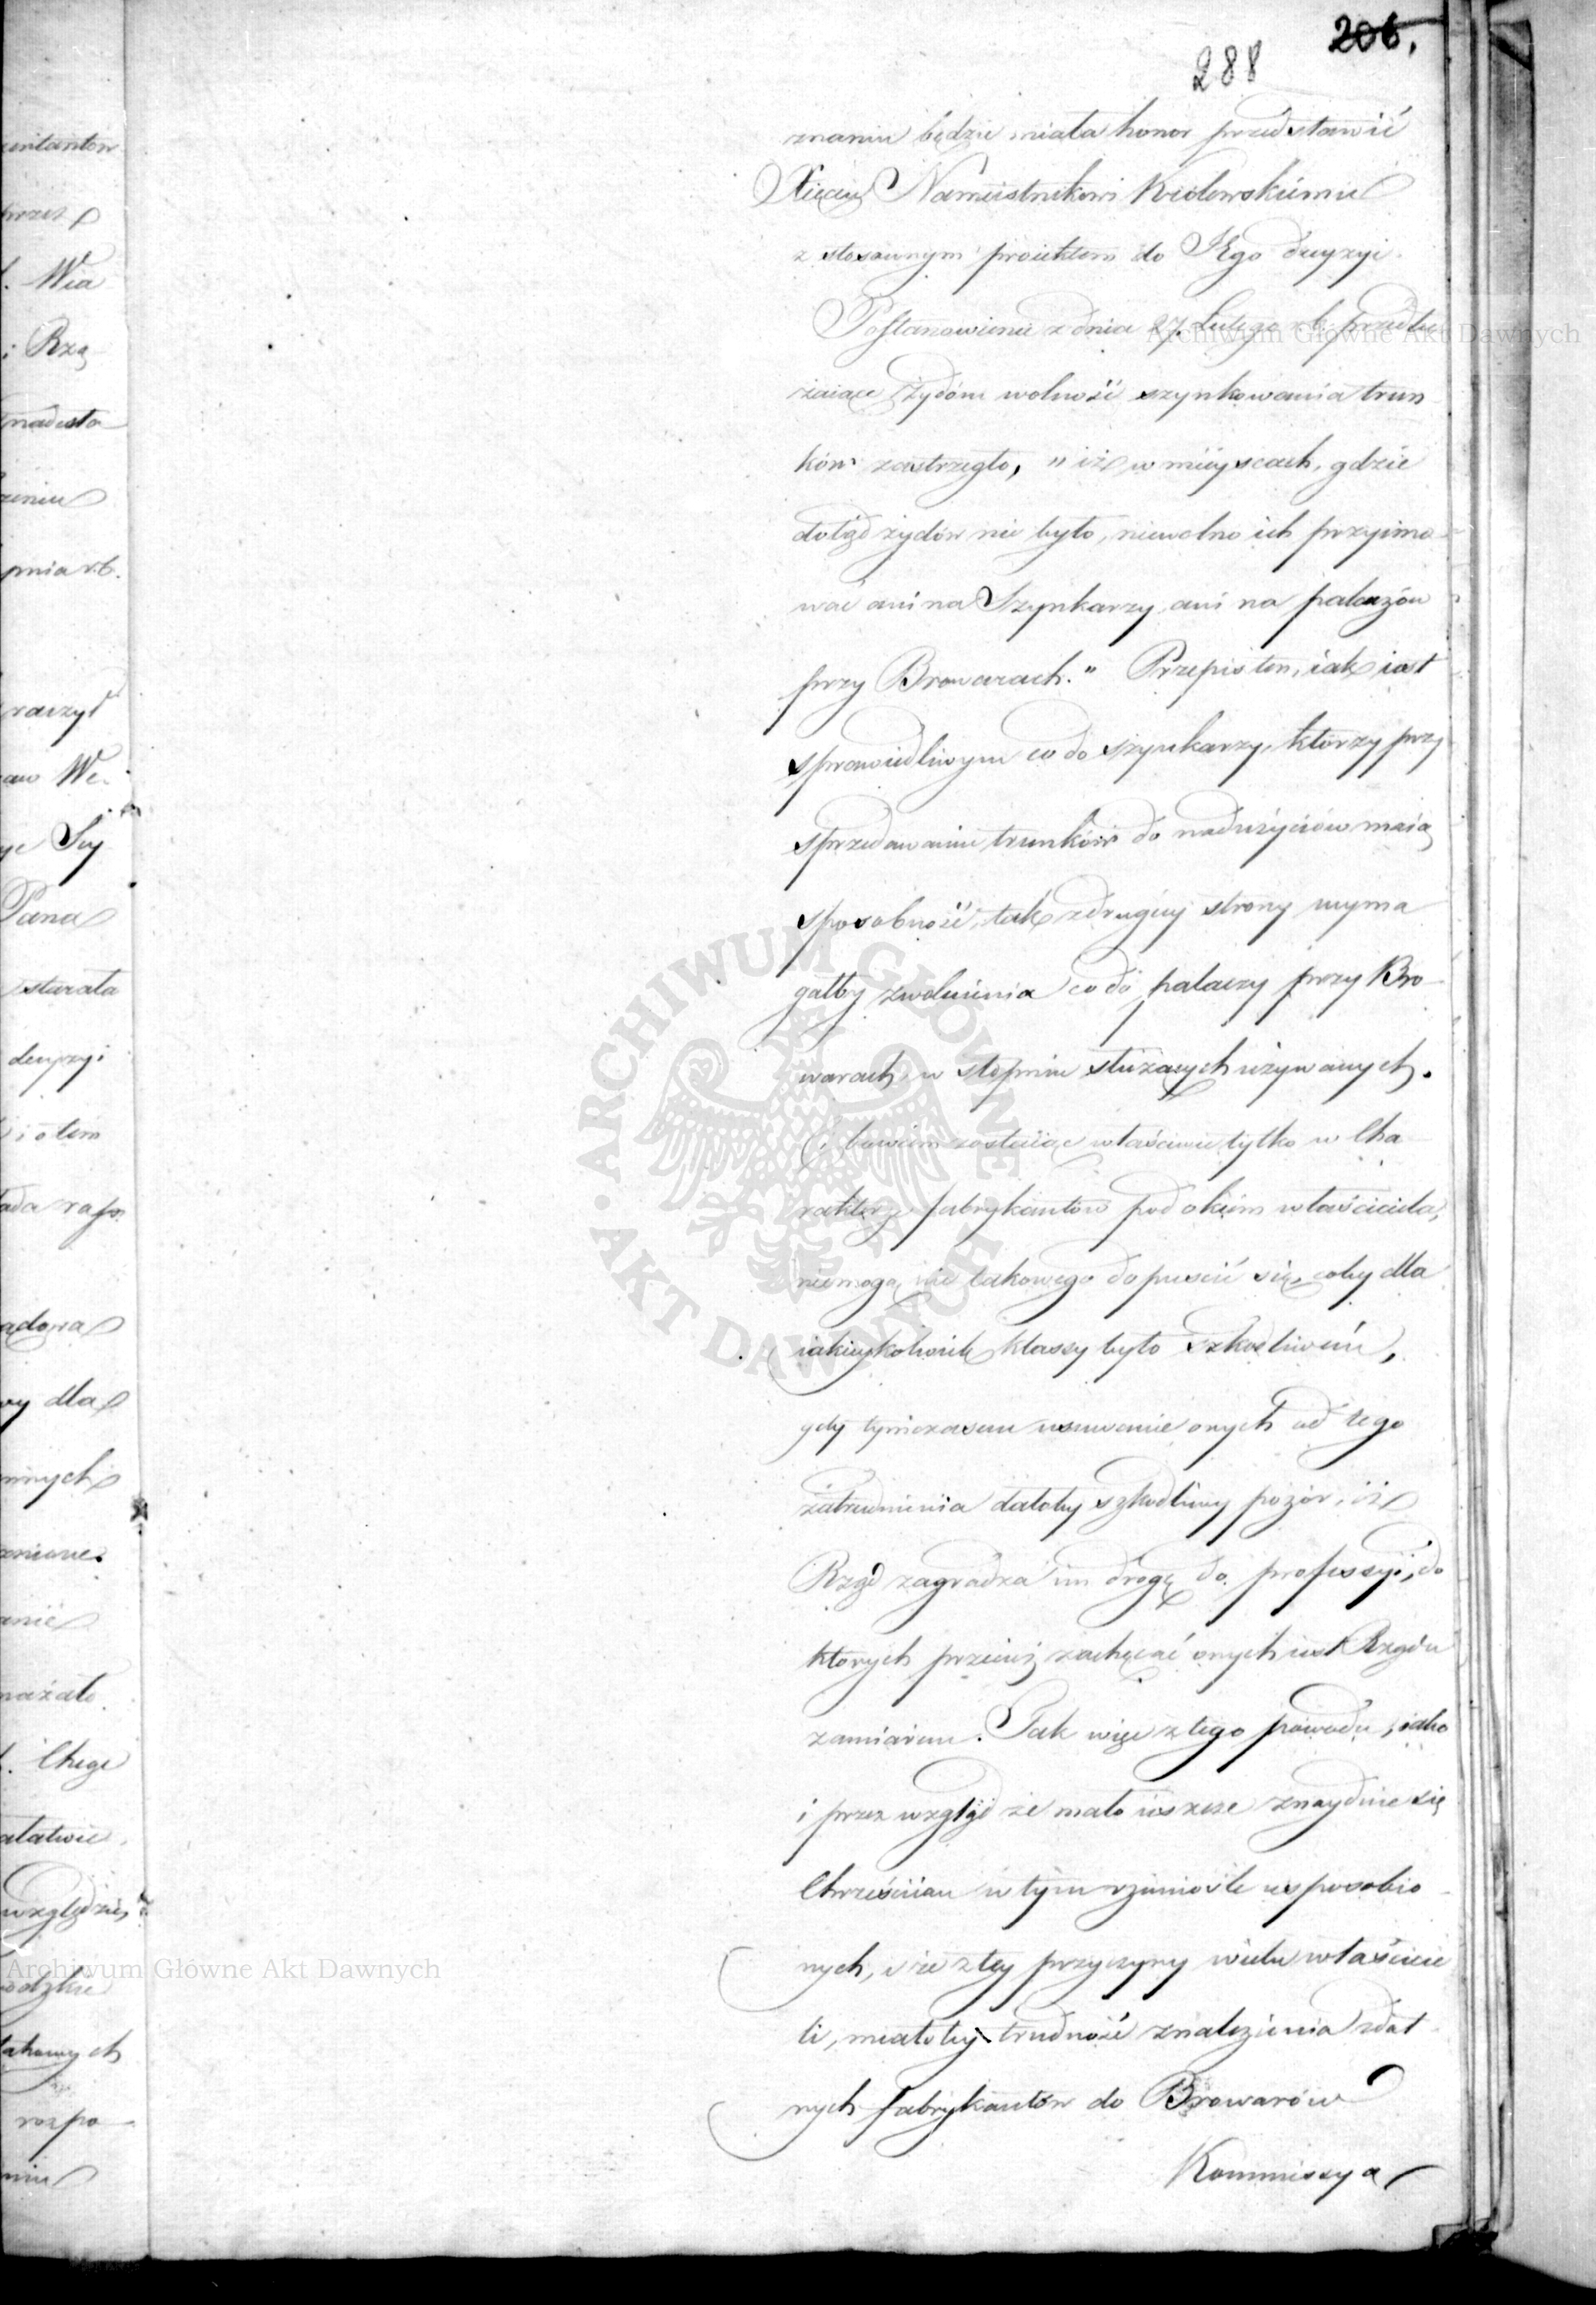 206.
288
znaniu będzie miała honor przedstawić
Xięciu Namiestnikowi Królewskiemu
z stosownym proiektem do JEgo decyzyi.
Postanowienie z dnia 27. Lutego r.b. przedłu
żaiące żydóm wolność szynkowania trun
ków zastrzegło, "iż w mieyscach, gdzie
dotąd żydów nie było, niewolno ich przyimo-
wać ani na Szynkarzy ani na palaczów
przy Browarach." Przepis ten, iak iest
sprawiedliwym co do szynkarzy, którzy przy
sprzedawaniu trunków do nadużyciów maią
sposobność, tak z drugiey strony wyma
gałby zwolnienia co do palaczy przy Bro-
warach w stopniu służących używanych.
Ci bowiem zostaiąc właściwie tylko w Cha
rakterze fabrykantów pod okiem właściciela,
niemogą nic takowego dopuścić się, coby dla
iakieykolwiek klassy było szkodliwém,
gdy tymczasem usuwanie onych od tego
zatrudnienia dałoby szkodliwy pozór, iż
Rząd zagradza im drogę do professyi, do
których przecież zachęcać onych iest Rządu
zamiarem. Tak więc z tego powodu, iako
i przez wzgląd że mało ieszcze znayduie się
Chrześcian w tym rzemiośle usposobio-
nych, i że z tey przyczyny wielu właścicie
li, miałoby trudność znalezienia zdat
nych fabrykantów do Browarów
Kommissya
entantów
przez
Wia
i Rzą
nadesła
zeniu
pnia r.b.
raczył
We.
Pana
starała
decyzyi
i o tem
rap
ądowa
wy dla
innych
anić
ważało
Chęge
ałatwie
względzie,
odzkie
takowych
rozpo-
niu
Archiwum Główne Akt Dawnych
ARCHIWUM GŁÓWNE · AKT DAWNYCH ·
Archiwum Główne Akt Dawnych